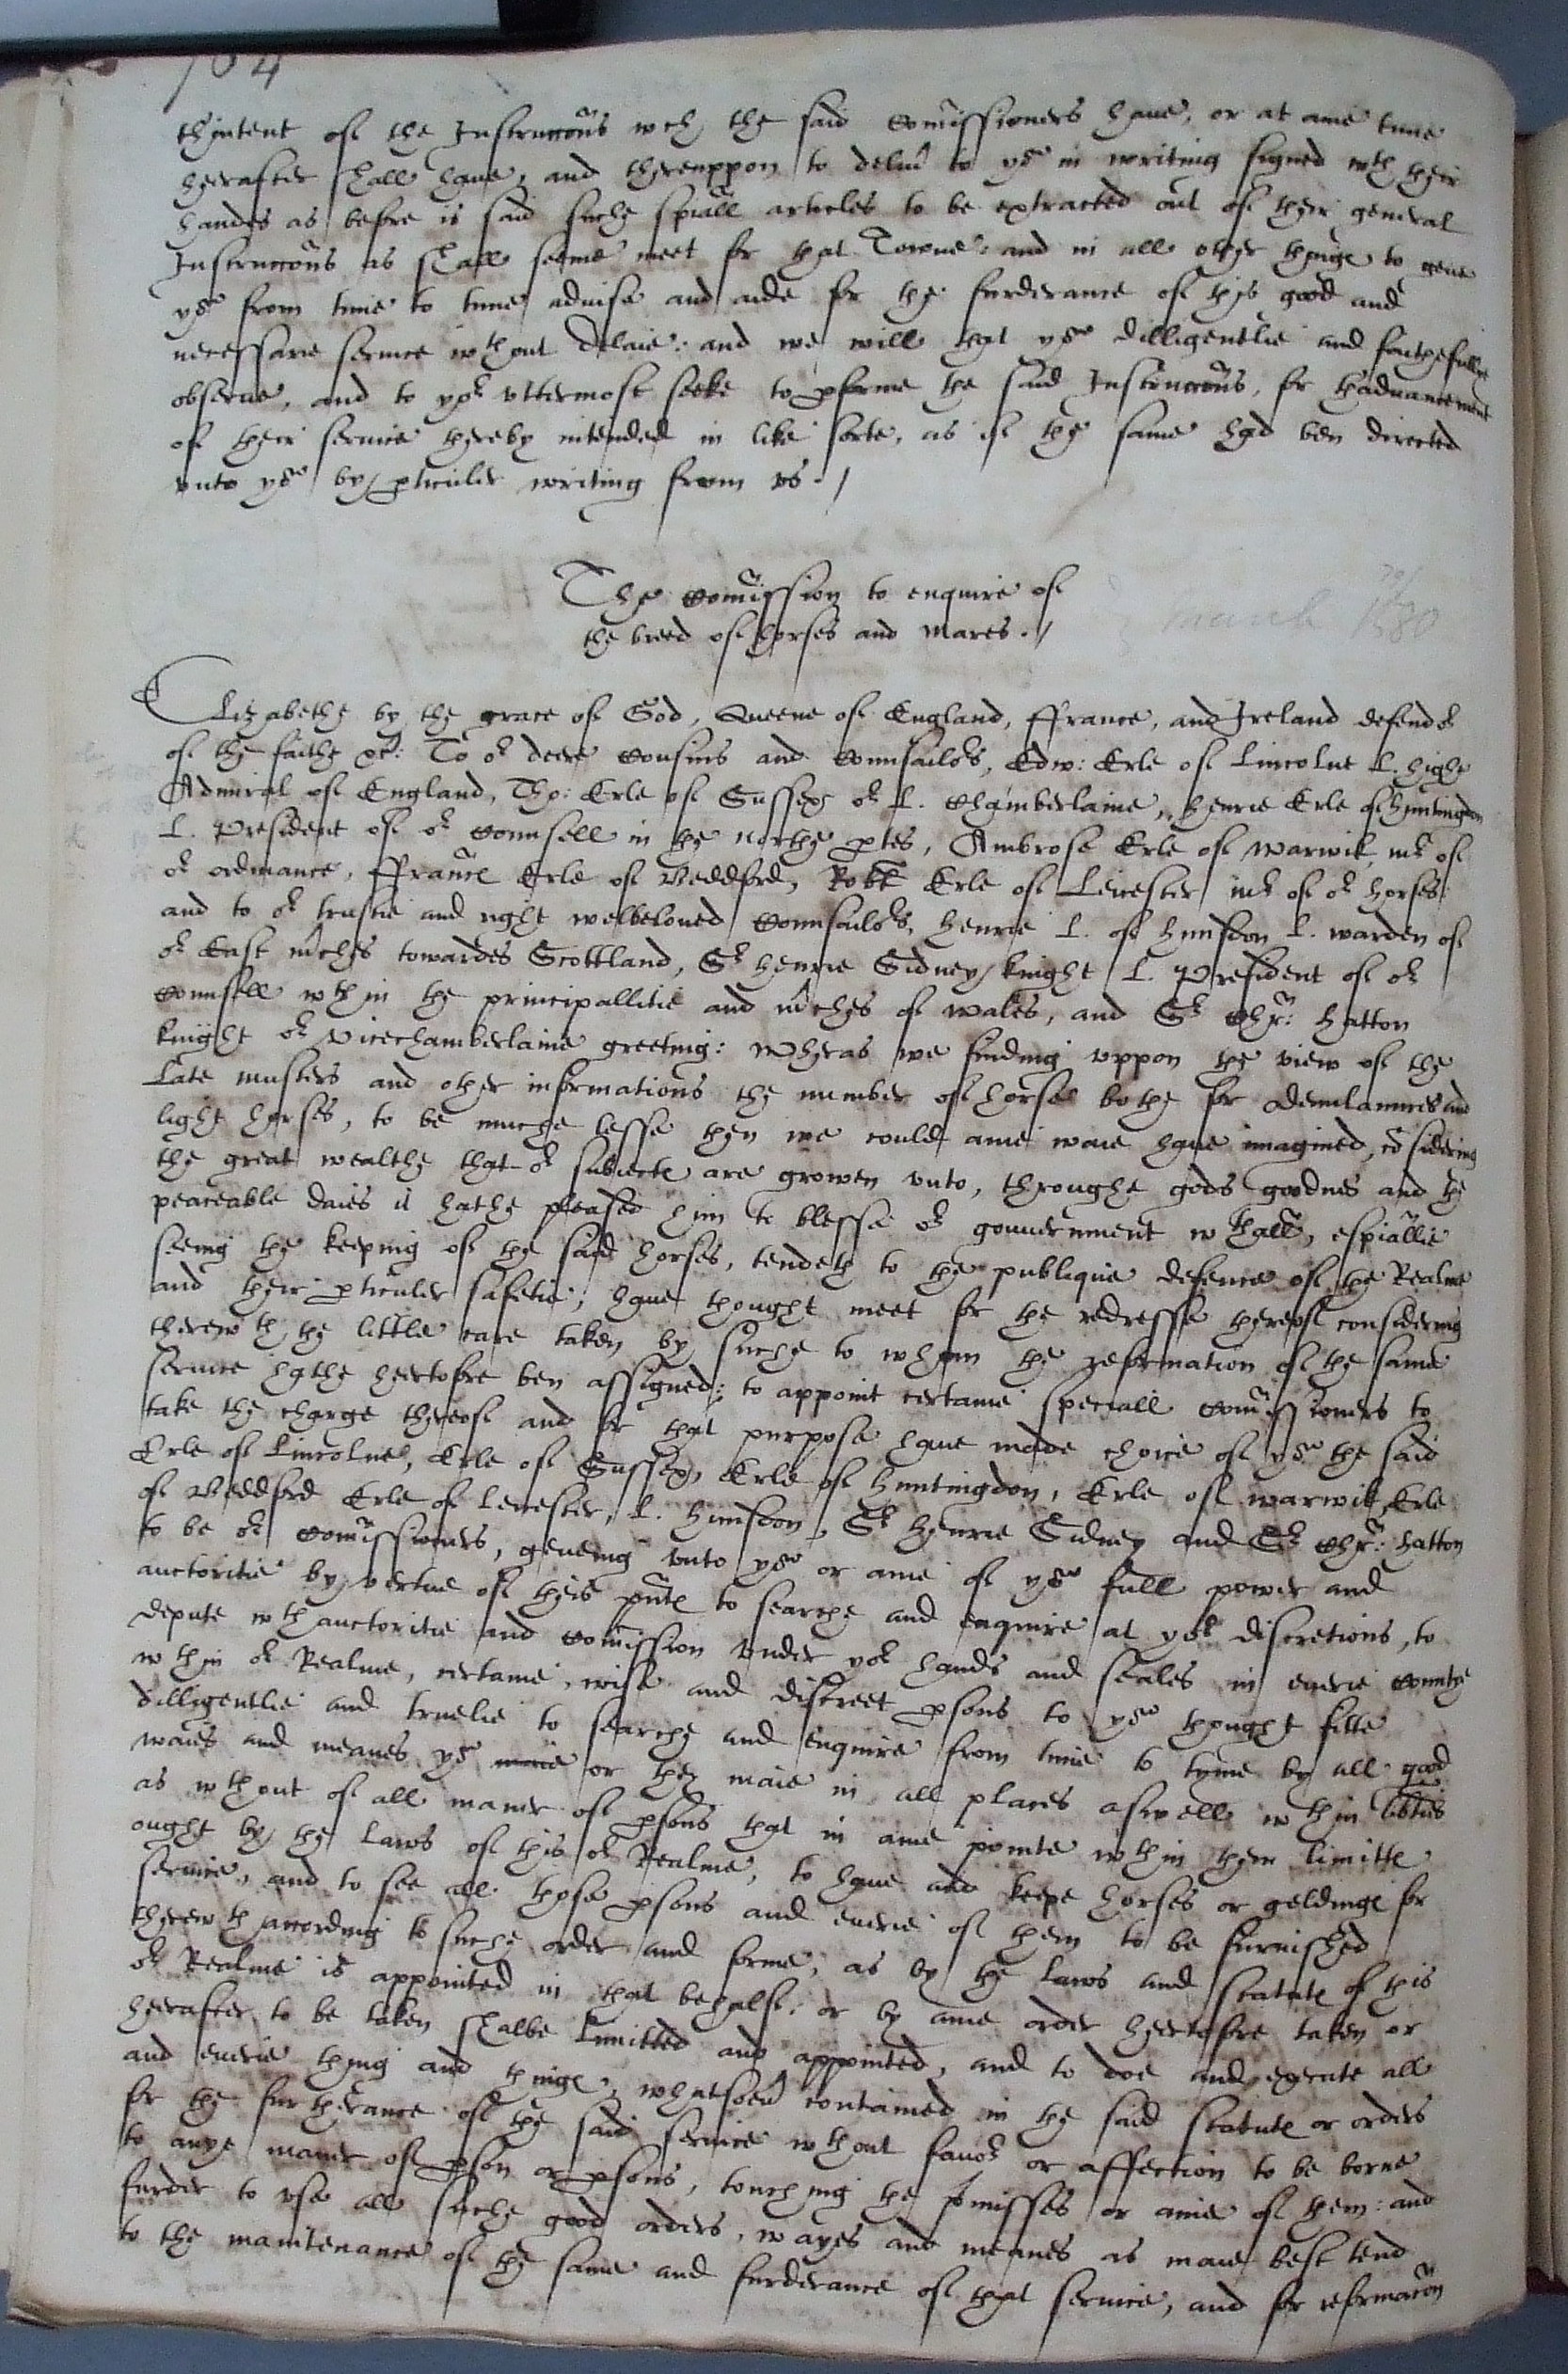 104
thintent of the Instruccõns wch the said Comissioners haue, or at anie time
herafter shall haue, and therevppon to deliu to yow in writing signed wth their
handes as before is said suche spiall articles to be extracted out of their general
Instruccõns as shall seeme meet for that Towne: and in all other thinges to geue
yow from time to time aduise and aide for the furderance of this good and
necessarie seruice wthout delaie: and we will that yow dilligentlie and faithefullye
obserue, and to yor vttermost seeke to pforme the said Instruccõns, for thaduancement
of their seruice thereby intended in like sorte, as if the same had ben directed
vnto yow by pticuler writing from vs./
The Comission to enquire of
the breed of horses and mares./
march 1580
Elizabethe by the grace of God, Queene of England, ffrance, and Ireland defendor
of the faithe &c: To or deere Cousins and Counsailors, Edw: Erle of Lincolne L. highe
Admiral of England, Tho: Erle of Sussex or L. Chamberlaine, Henrie Erle of Huntingdon
L. President of or Counsell in the northe ptes, Ambrose Erle of Warwik, mr of
or ordinance, ffrauncs Erle of Beddford, Robt Erle of Leicester mr of or horses:
and to or trustie and right welbeloued Counsailors, Henrie L. of Hunsdon L. warden of
or East mches towardes Scottland, Sr Henrie Sidney knight L. President of or
Counsell wthin the principallitie and mches of Wales, and Sr Chr: Hatton
knight or Vicechamberlaine greeting: Wheras we finding vppon the view of the
Late musters and other informations the number of horses bothe for demilaunces and
light horses, to be muche lesse then we could anie waie haue imagined, cõsidering
the great wealthe that or subiects are growen vnto, throughe gods goodnes and the
peaceable daies it hathe pleased him to blesse or gouuernment wthall, espiallie
seeing the keeping of the said horses, tendeth to the publique defence of the Realme
and their pticuler safetie, haue thought meet for the redresse thereof considering
therewth the little care taken by suche to whom the reformation of the same
seruice hathe hertofore ben assigned: to appoint certaine speciall Comissioners to
take the charge thereof and for that purpose haue made choice of yow the said
Erle of Lincolne, Erle of Sussex, Erle of Huntingdon, Erle of Warwik, Erle
of Beddford Erle of Leicester, L. Hunsdon, Sr Henrie Sidney and Sr Chr: Hatton
to be or Comissioners, geueing vnto yow or anie of yow full power and
auctoritie by vertue of theis pnts to searche and enquire at yor discretions, to
depute wth auctoritie and Comission vnder yor hands and seales in euerie Countye
wthin or Realme, certaine, wise and discreet psons to yow thought fitte
dilligentlie and truelie to searche and enquire from time to tyme by all good
waies and meanes yow maie or they maie in all places aswell wthin liberties
as wthout of all maner of psons that in anie pointe wthin their limitts
ought by the Laws of this or Realme, to haue and keepe horses or geldings for
seruice, and to see all those psons and euerie of them to be furnished
therewth according to suche order and forme, as by the laws and statuts of this
or Realme is appointed in that behalfe: or by anie order heertofore taken or
herafter to be taken shalbe limitted and appointed, and to doe and execute all
and euerie thing and things, whatsoeu contained in the said statuts or orders
for the furtherance of the said seruice wthout fauor or affection to be borne
to anye maner of pson or psons, touching the pmisses or anie of them: and
furder to vse all suche good orders, wayes and meanes as maie best tend
to the maintenance of the same and furderance of that seruice, and for reformacõn